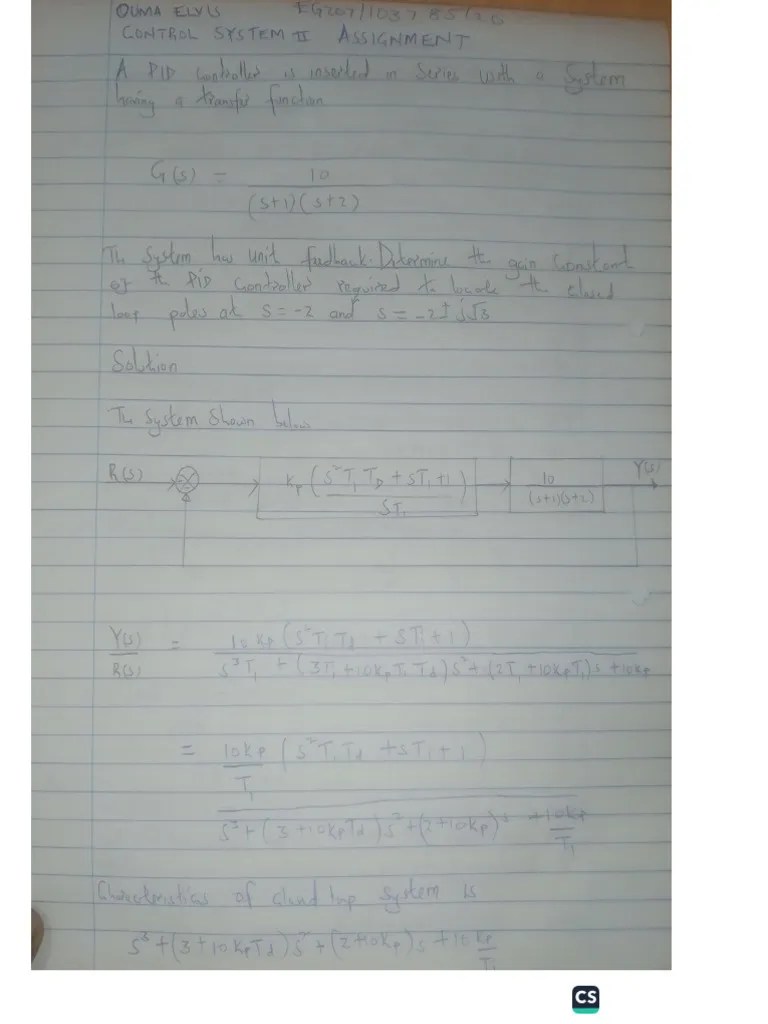 OUMA ELVIS EG207/103785/20
CONTROL SYSTEM II ASSIGNMENT
A PID Controller is inserted in Series with a System
having a transfer function
G(s) = 10 / (s+1)(s+2)
The System has unit feedback. Determine the gain Constant
of the PID Controller required to locate the closed
loop poles at s = -2 and s = -2 ± j√3
Solution
The System Shown below
R(s) Kp (s²T₁ T_D + sT₁ + 1) / ST₁ 10 / (s+1)(s+2) Y(s)
Y(s)/R(s) = 10 Kp (s²T₁Td + sT₁ + 1) / s³T₁ + (3T₁ + 10KpT₁Td)s² + (2T₁ + 10KpT₁)s + 10Kp
= 10Kp/T₁ (s²T₁Td + sT₁ + 1)
s³ + (3 + 10KpTd)s² + (2 + 10Kp)s + 10Kp/T₁
Characteristics of closed loop System is
s³ + (3 + 10KpTd)s² + (2 + 10Kp)s + 10 Kp/T₁
CS